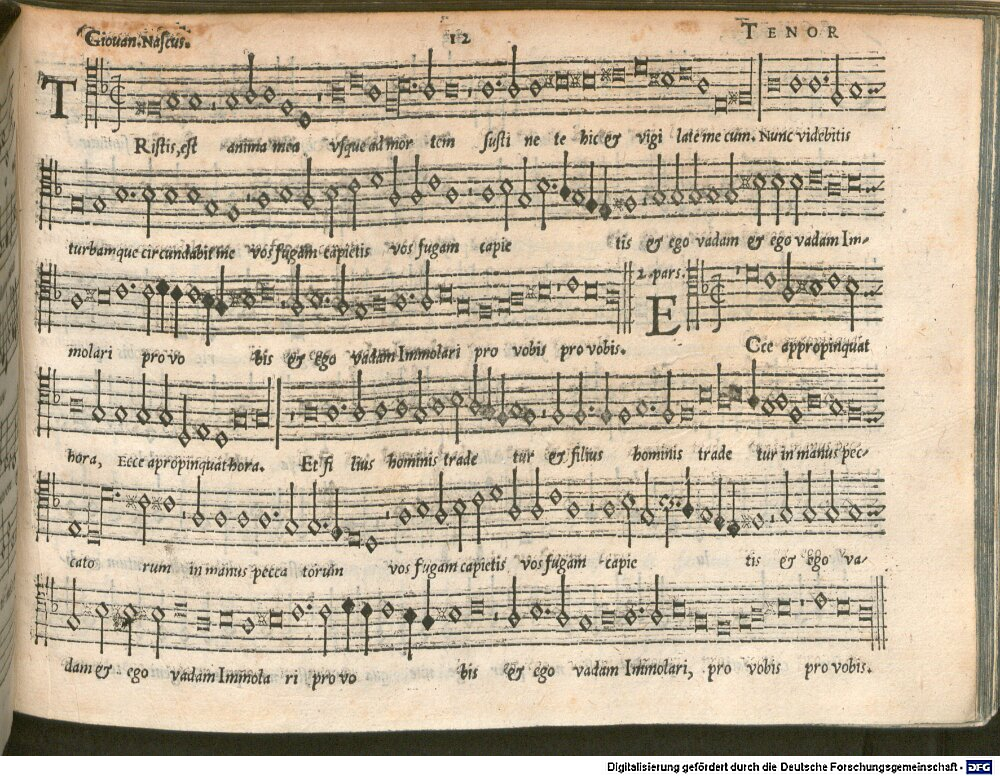 Giovan. Nascus.
12
TENOR
TRistis, est anima mea vsque ad mor tem susti ne te hic & vigi late me cum. Nunc videbitis
turbamque circundabit me vos fugam capietis vos fugam capie tis & ego vadam & ego vadam Im-
2. pars.
molari pro vo bis & ego vadam Immolari pro vobis pro vobis. ECce appropinquat
hora, Ecce apropinquat hora. Et fi lius hominis trade tur & filius hominis trade tur in manus pec-
cato rum in manus pecca torum vos fugam capietis vos fugam capie tis & ego va-
dam & ego vadam Immola ri pro vo bis & ego vadam Immolari, pro vobis pro vobis.
Digitalisierung gefördert durch die Deutsche Forschungsgemeinschaft - DFG